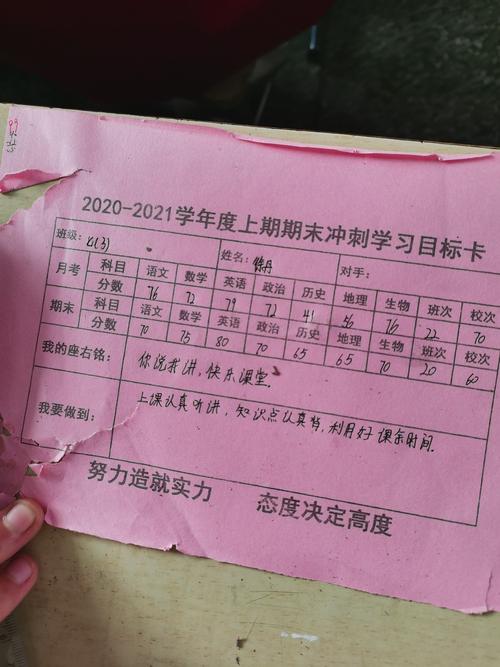 2020-2021学年度上期期末冲刺学习目标卡
班级: 七(3) 姓名: 徐丹 对手:
月考 科目 语文 数学 英语 政治 历史 地理 生物 班次 校次
分数 76 72 79 72 41 56 76 22 70
期末 科目 语文 数学 英语 政治 历史 地理 生物 班次 校次
分数 70 75 80 70 65 65 70 20 60
我的座右铭: 你说我讲,快乐课堂.
我要做到: 上课认真听讲,知识点认真背,利用好课余时间.
努力造就实力 态度决定高度